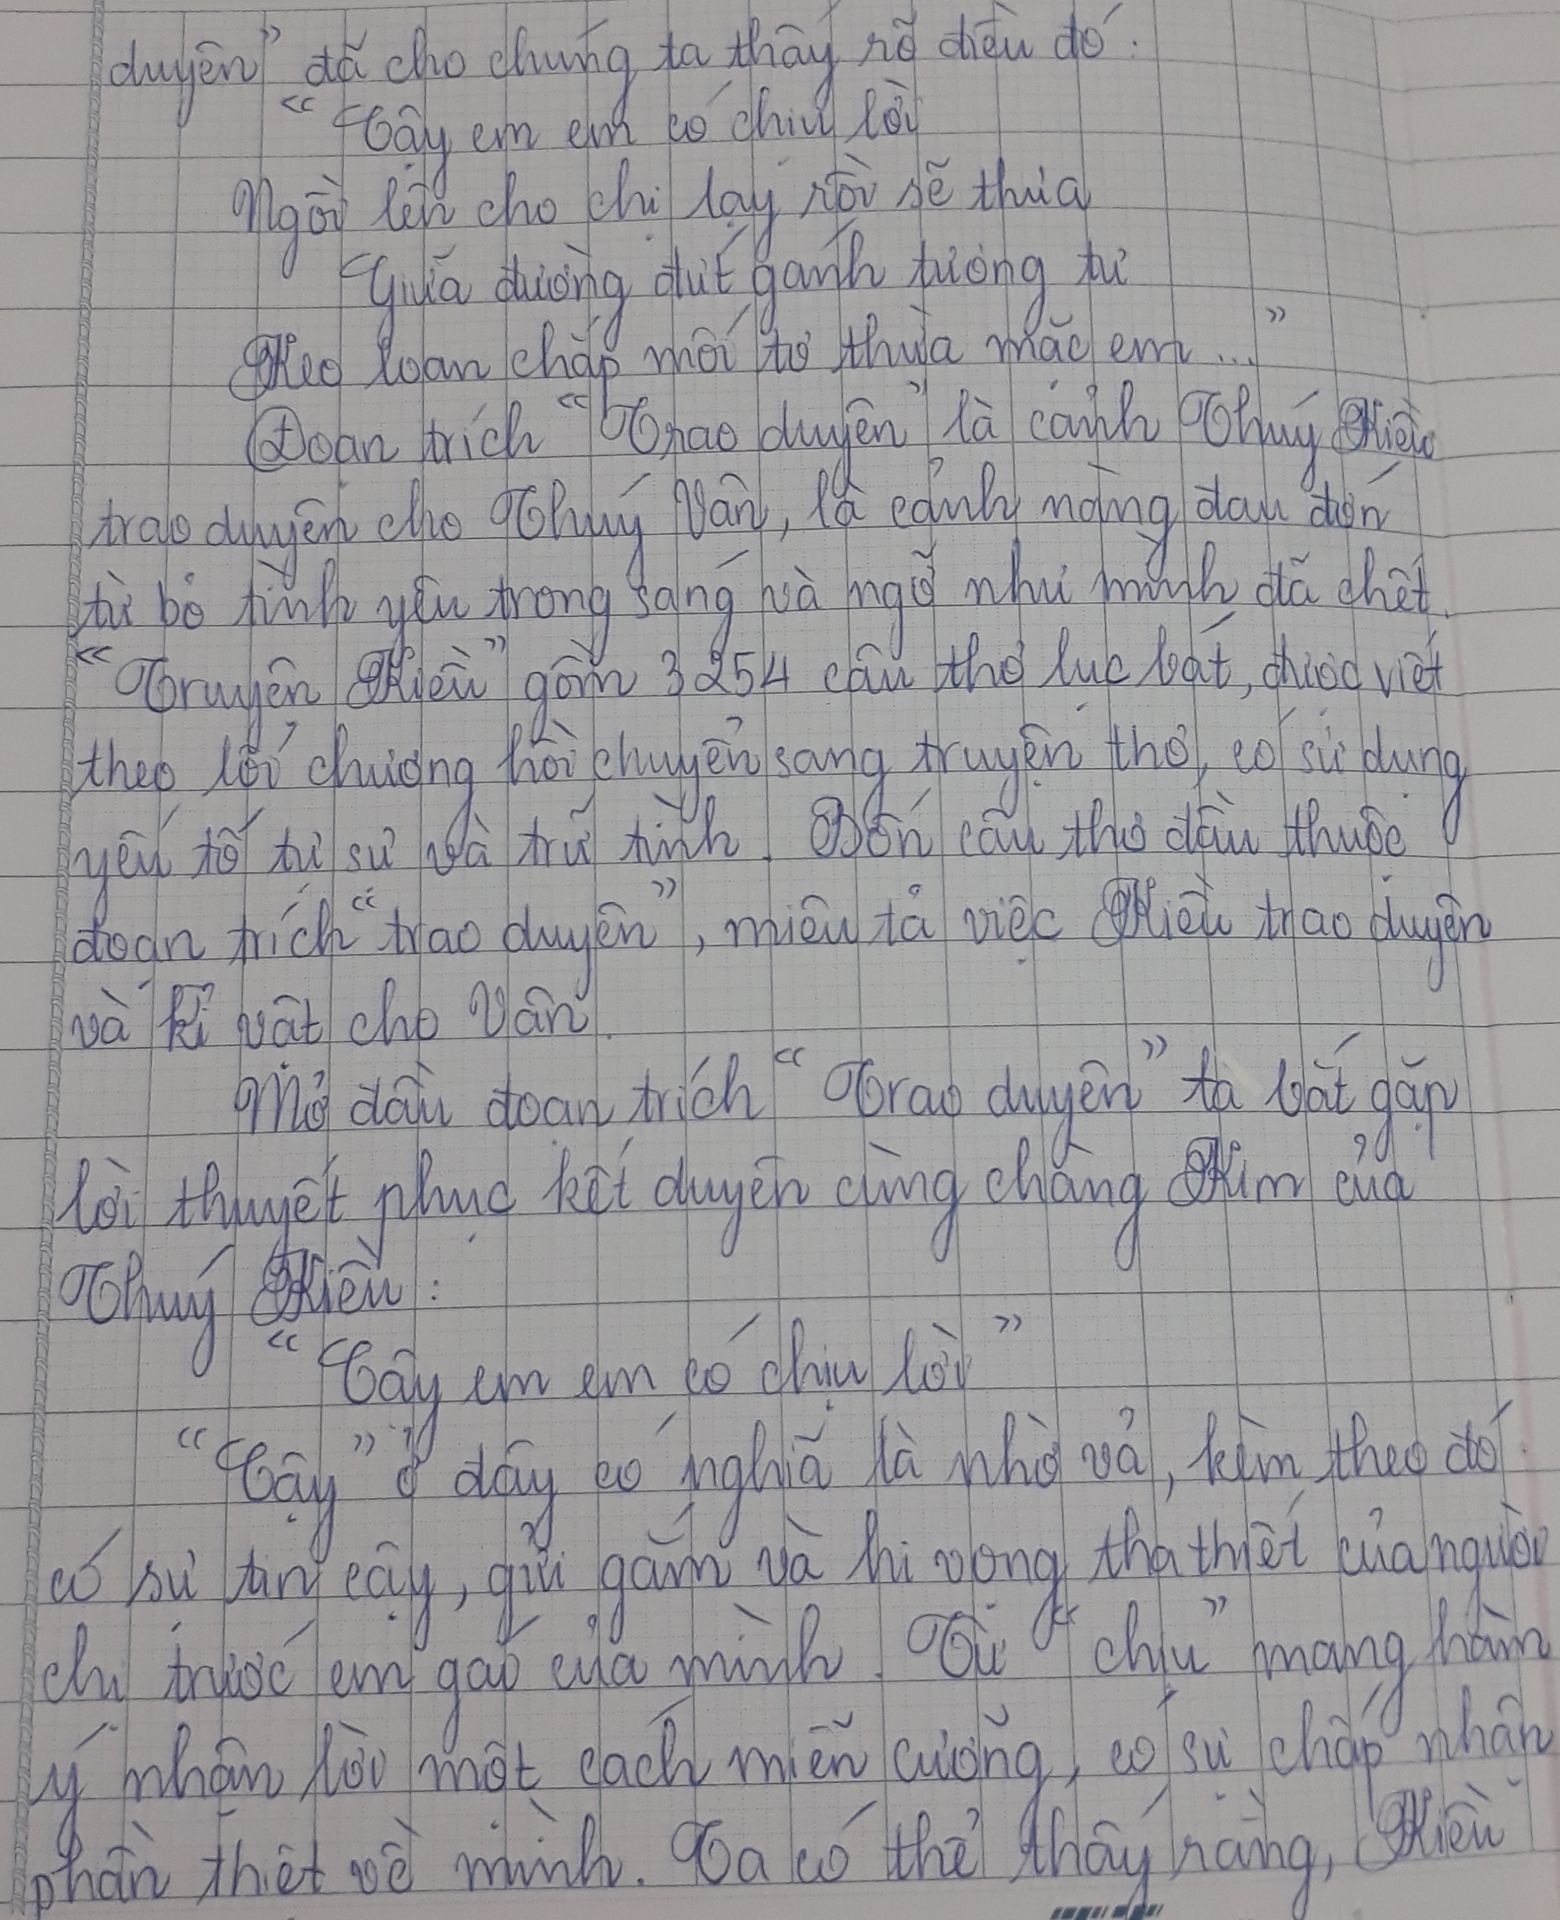 duyên" đã cho chúng ta thấy rõ điều đó:
"Cậy em em có chịu lời
Ngồi lên cho chị lạy rồi sẽ thưa
Giữa đường đứt gánh tương tư
Keo loan chắp mối tơ thừa mặc em..."
Đoạn trích "Trao duyên" là cảnh Thuý Kiều
trao duyên cho Thuý Vân, là cảnh nàng đau đớn
từ bỏ tình yêu trong sáng và ngỡ như mình đã chết.
"Truyện Kiều" gồm 3254 câu thơ lục bát, được viết
theo lối chương hồi chuyển sang truyện thơ, có sử dụng
yếu tố tự sự và trữ tình. Bốn câu thơ đầu thuộc
đoạn trích "trao duyên", miêu tả việc Kiều trao duyên
và kỉ vật cho Vân.
Mở đầu đoạn trích "Trao duyên" ta bắt gặp
lời thuyết phục kết duyên cùng chàng Kim của
Thuý Kiều:
"Cậy em em có chịu lời"
"Cậy" ở đây có nghĩa là nhờ vả, kèm theo đó
có sự tin cậy, gửi gắm và hi vọng tha thiết của người
chị trước em gái của mình. Từ "chịu" mang hàm
ý nhận lời một cách miễn cưỡng, có sự chấp nhận
phần thiệt về mình. Ta có thể thấy rằng, Kiều